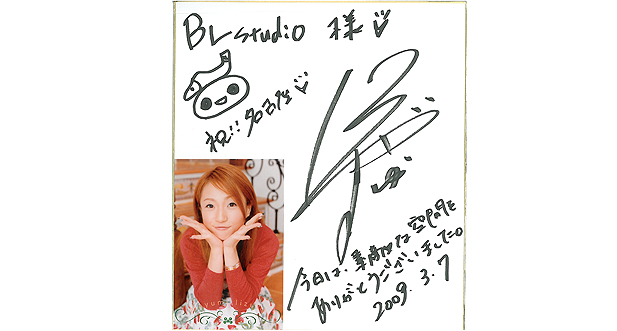 BL studio 様♡
祝!! 名古屋♡
今日は、素敵な空間を
ありがとうございました。
2009. 3. 7